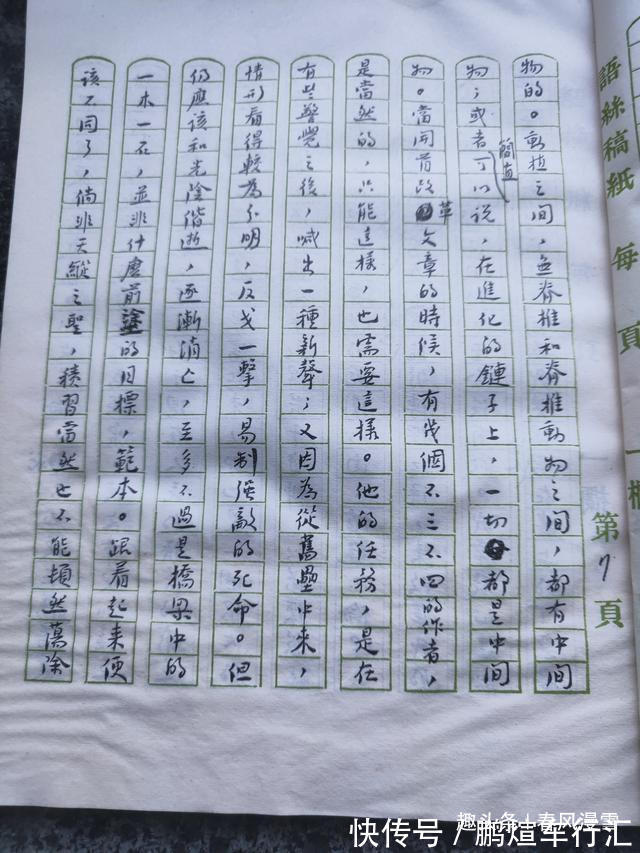 語絲稿紙 每頁一
第7頁
物的。動植之間，無脊椎和脊椎動物之間，都有中間
物；或者簡直可以说，在進化的鏈子上，一切都是中間
物。當開首改革文章的時候，有幾個不三不四的作者，
是當然的，只能這樣，也需要這樣。他的任務，是在
有些警覺之後，喊出一種新聲；又因為從舊壘中來，
情形看得較為分明，反戈一擊，易制强敵的死命。但
仍應該和光陰偕逝，逐漸消亡，至多不過是橋梁中的
一木一石，並非什麽前塗的目標，範本。跟着起来便
該不同了，倘非天縱之聖，積習當然也不能頓然蕩除
趣头条！春风漫雪
快传号／鹏煊车行汇